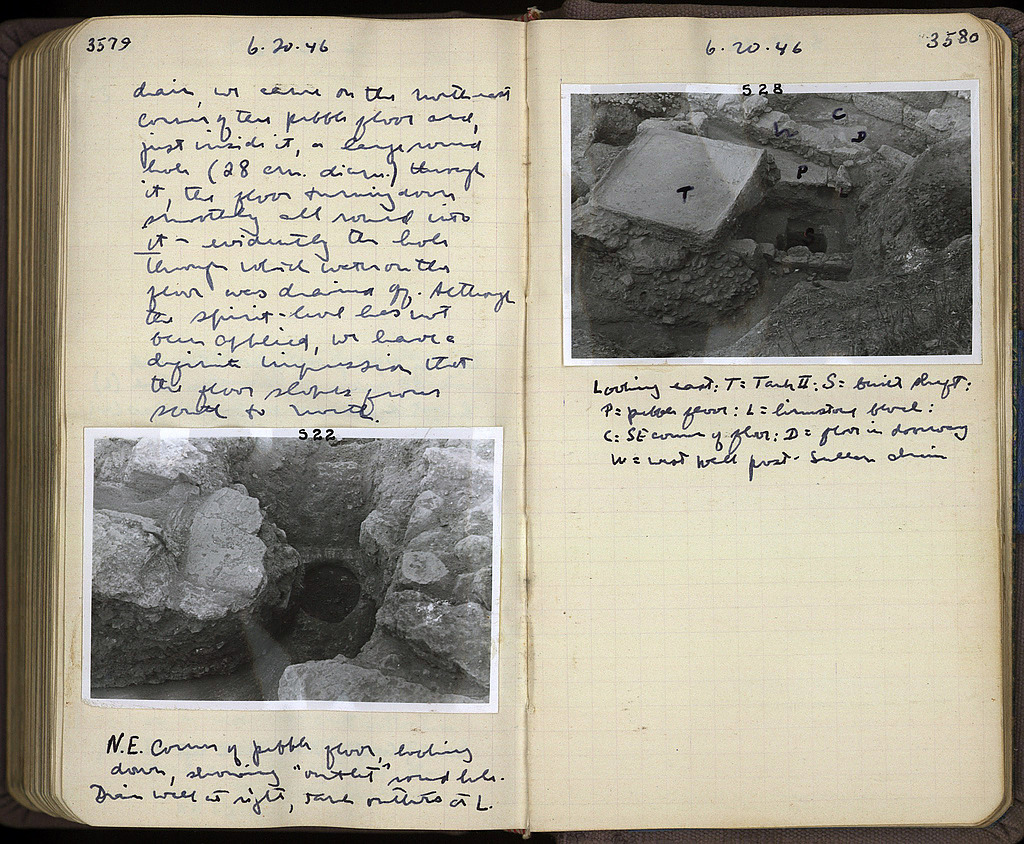 3579
6.20.46
drain, we came on the northeast
corner of this pebble floor and,
just inside it, a large round
hole (28 cm. diam.) through
it, the floor turning down
smoothly all round into
it – evidently the hole
through which water on the
floor was drained off. Although
the spirit-level has not
been applied, we have a
definite impression that
the floor slopes from
south to north.
522
N.E. corner of pebble floor, looking
down, showing "outlet" round hole.
Drain wall at right, outlets at L.
6.20.46
3580
528
C
W
D
P
T
Looking east: T = Tank II: S = built shaft:
P = pebble floor: L = limestone block:
C: SE corner of floor: D = floor in doorway
W = west wall post-Sullan drain